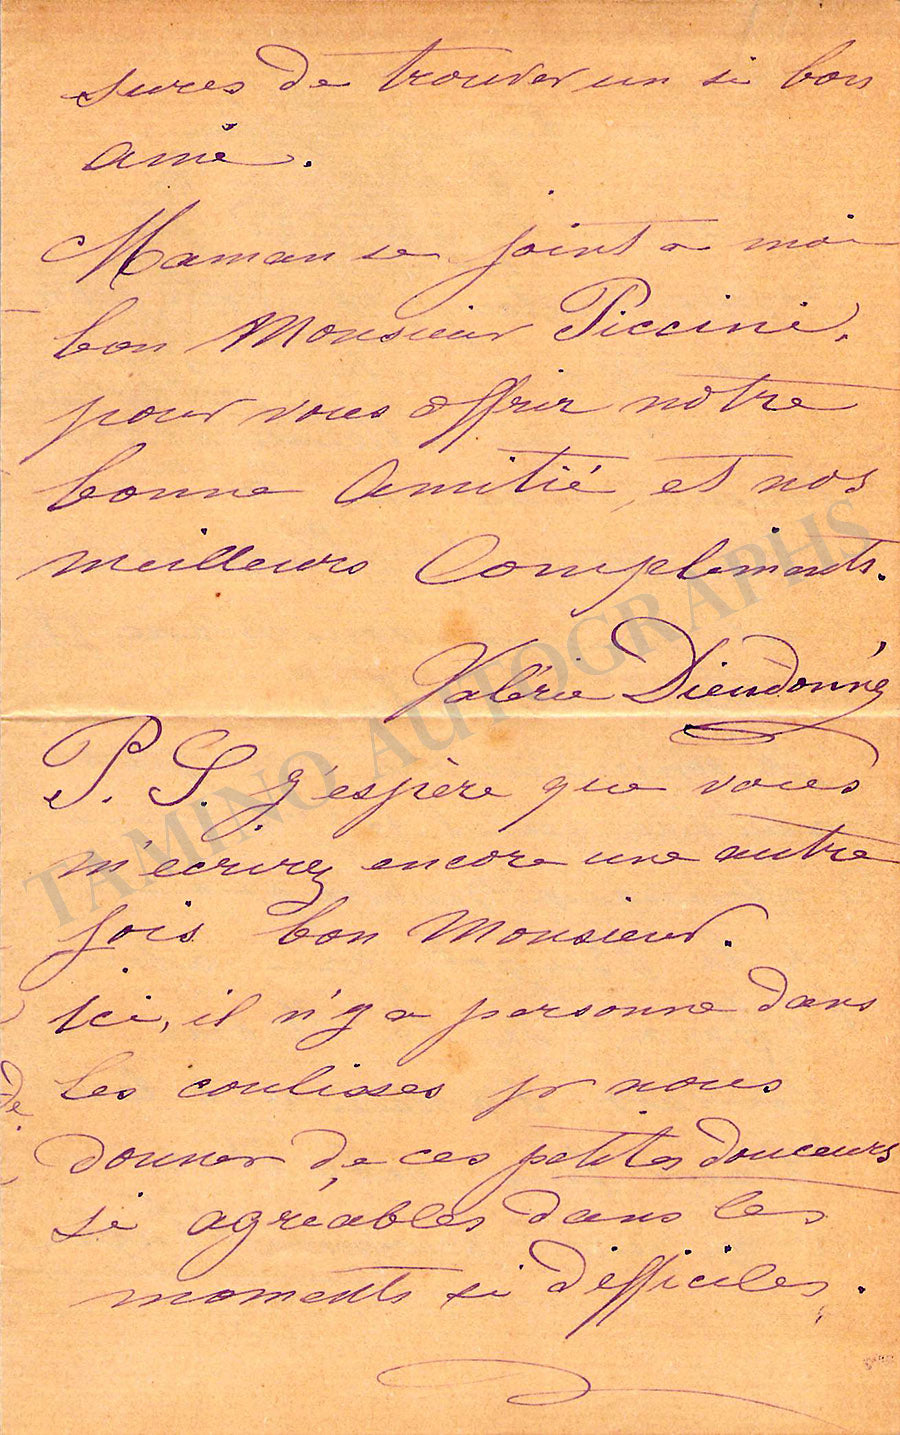 sures de trouver un si bon
ami.
Maman se joint a moi
bon Monsieur Piccini,
pour vous offrir notre
bonne amitié, et nos
meilleurs Compliments.
Valérie Dieudonné
P. S. j'espère que vous
m'ecrirez encore une autre
fois bon Monsieur.
Ici, il n'y a personne dans
les coulisses pr nous
donner de ces petites douceurs
si agréables dans les
moments si difficiles.
de
TAMINO AUTOGRAPHS